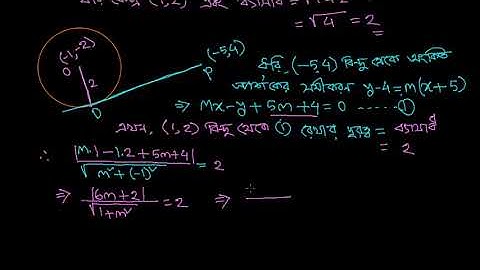 কেন্দ্র (1,2) এবং ব্যাসার্ধ =
= √4 = 2
(-1,-2)
O
2
D
(-5,4)
P
ধরি, (-5,4) বিন্দু থেকে অংকিত
স্পর্শকের সমীকরণ y-4=m(x+5)
⇒ mx-y+5m+4=0 ...... ①
এখন, (1,2) বিন্দু থেকে ① রেখার দূরত্ব = ব্যাসার্ধ
= 2
∴ |m.1-1.2+5m+4| / √m²+(-1)² = 2
⇒ |6m+2| / √1+m² = 2 ⇒